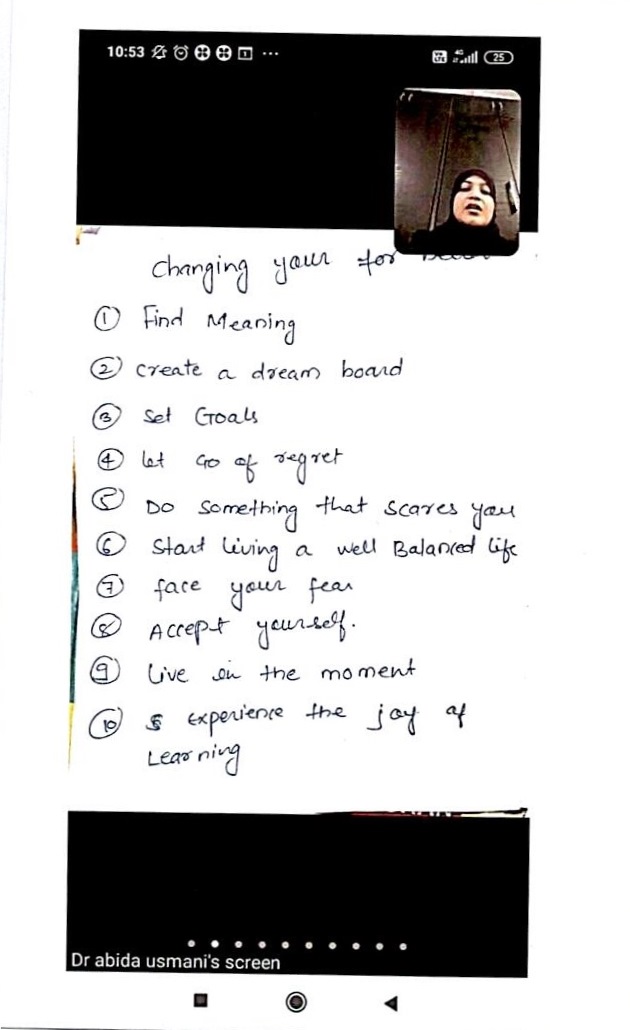 10:53 ...
Vo LTE 4G 25
Changing your for
① Find Meaning
② create a dream board
③ Set Goals
④ let Go of regret
⑤ Do something that scares you
⑥ Start living a well Balanced life
⑦ face your fear
⑧ Accept yourself.
⑨ live in the moment
⑩ Experience the joy of
Learning
Dr abida usmani's screen